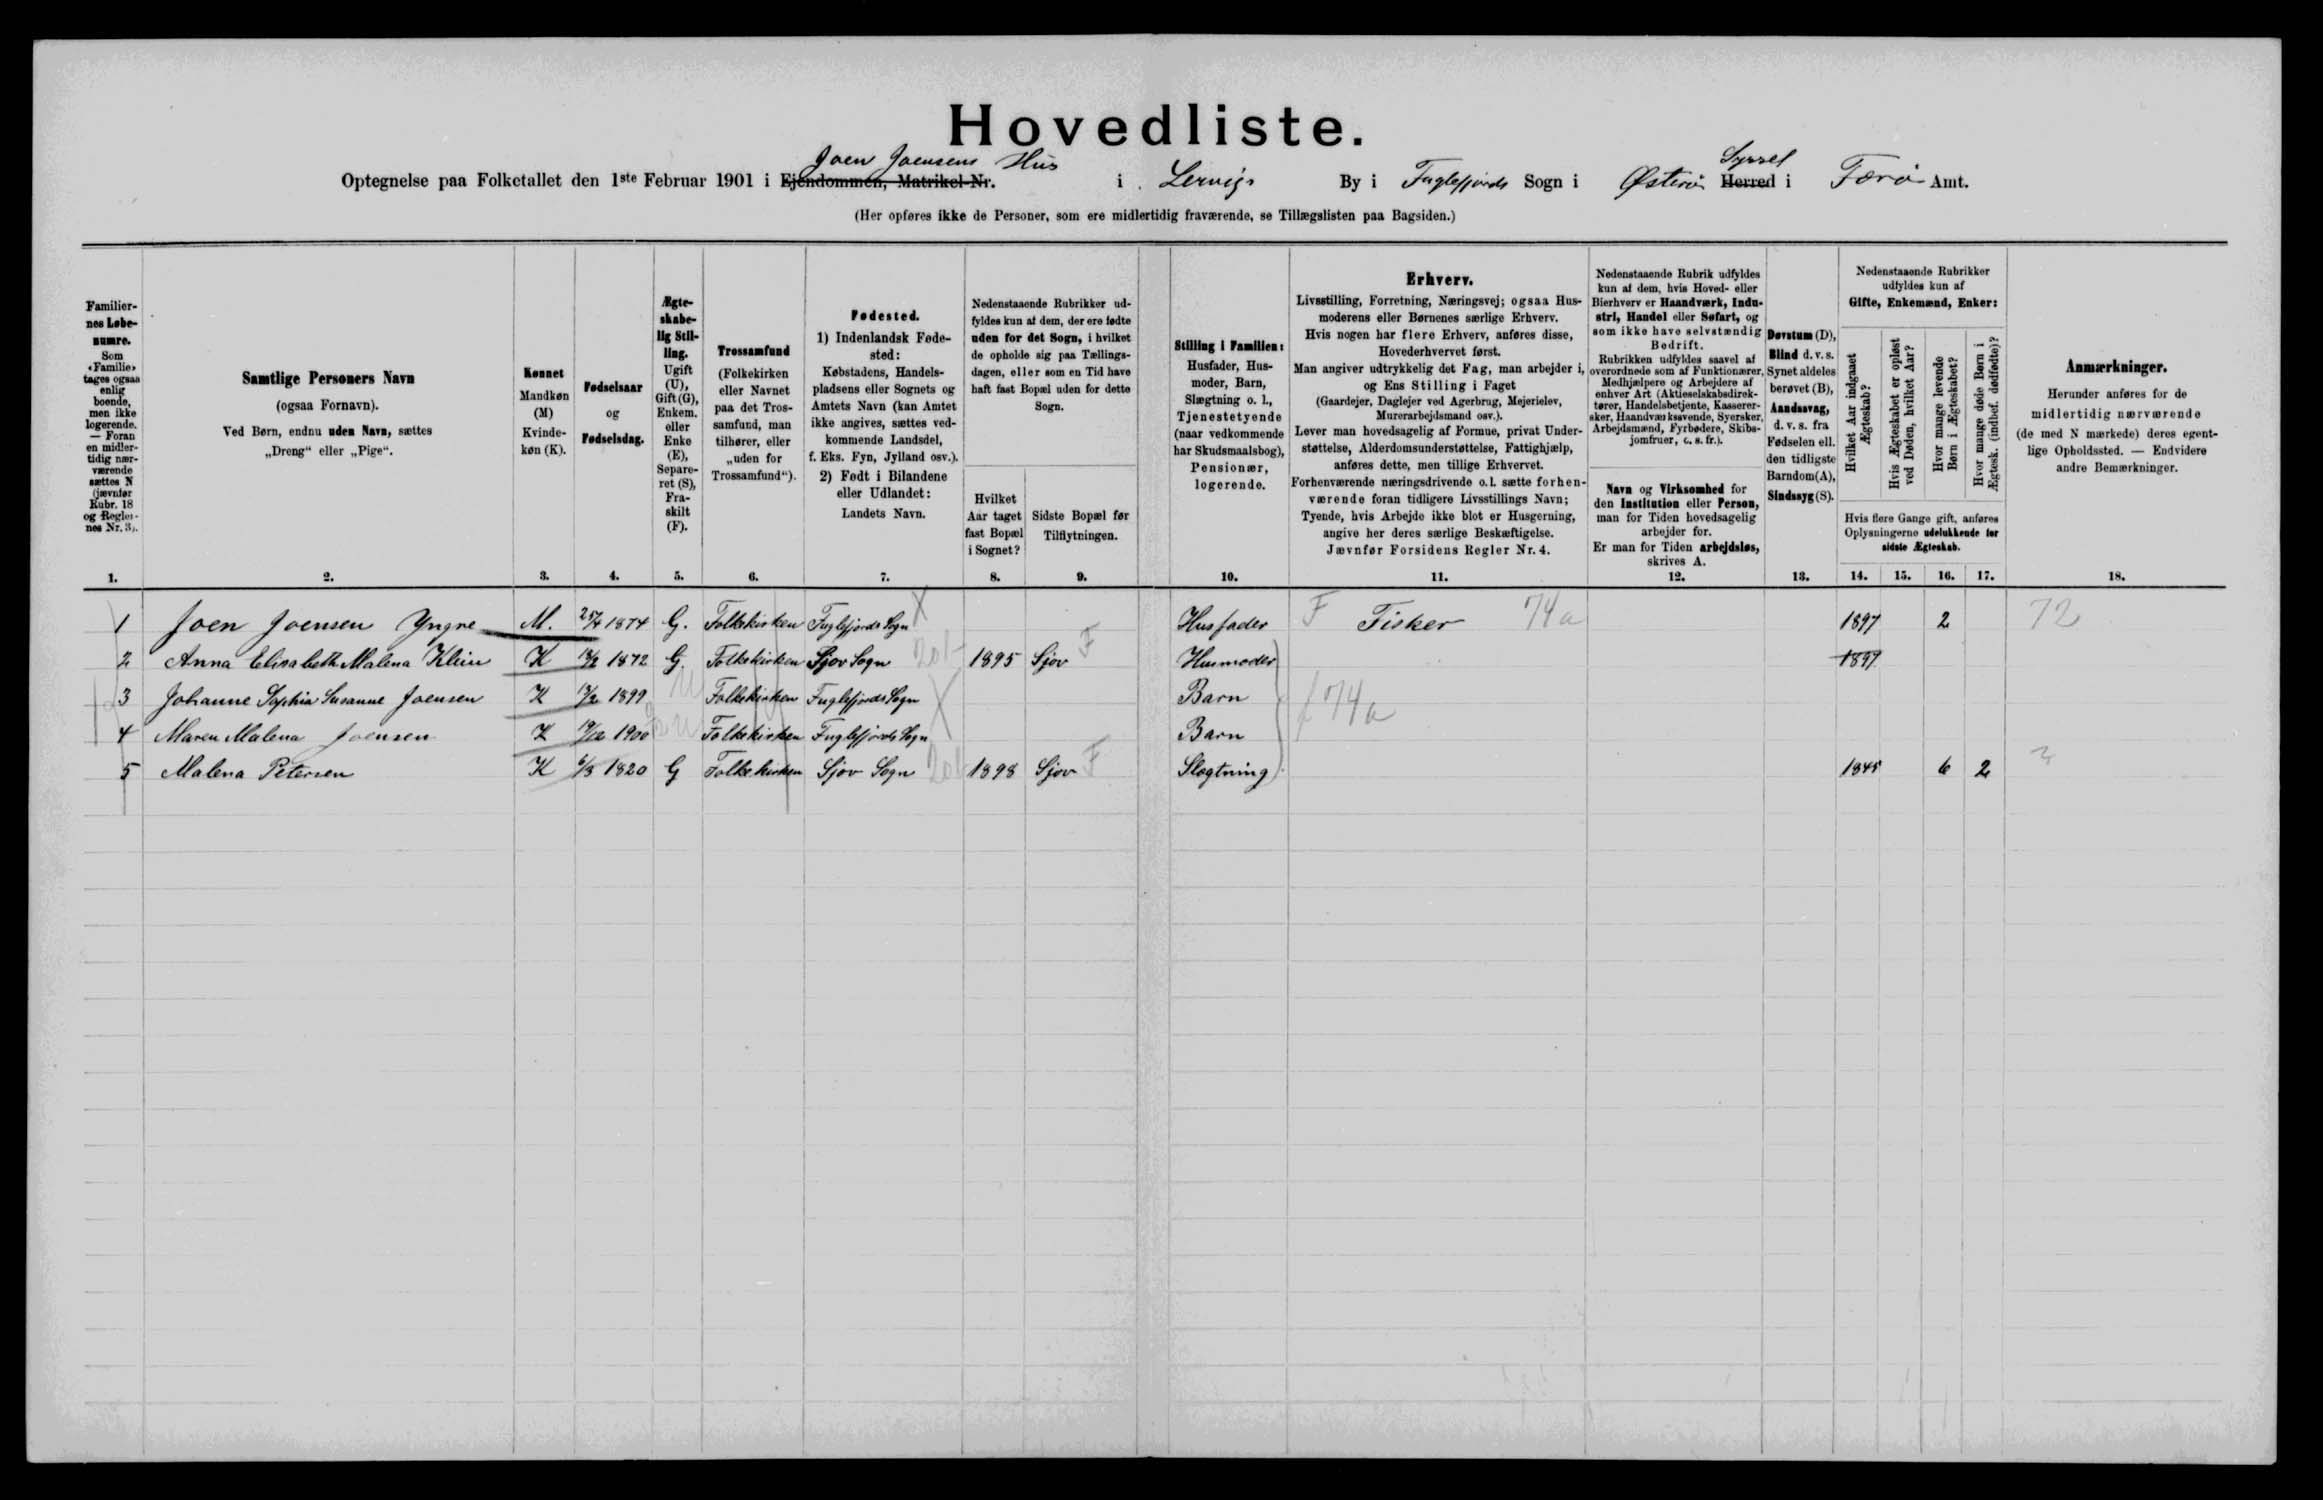 Hovedliste.
Joen Joensens Hus
Syssel
Optegnelse paa Folketallet den 1ste Februar 1901 i Ejendommen, Matrikel-Nr. i Lervigs By i Fuglefjords Sogn i Østerø Herred i Færø Amt.
(Her opføres ikke de Personer, som ere midlertidig fraværende, se Tillægslisten paa Bagsiden.)
Familiernes Løbenumre.
Som «Familie» tages ogsaa enlig boende, men ikke logerende. — Foran en midlertidig nærværende sættes N (jævnfør Rubr. 18 og Reglernes Nr. 3).
1.
Samtlige Personers Navn
(ogsaa Fornavn).
Ved Børn, endnu uden Navn, sættes
„Dreng“ eller „Pige“.
2.
Kønnet
Mandkøn
(M)
Kvinde-
køn (K).
3.
Fødselsaar
og
Fødselsdag.
4.
Ægte-
skabe-
lig Stil-
ling.
Ugift
(U),
Gift (G),
Enkem.
eller
Enke
(E),
Separe-
ret (S),
Fra-
skilt
(F).
5.
Trossamfund
(Folkekirken
eller Navnet
paa det Tros-
samfund, man
tilhører, eller
„uden for
Trossamfund“).
6.
Fødested.
1) IndenlandskFøde-
sted:
Købstadens, Handels-
pladsens eller Sognets og
Amtets Navn (kan Amtet
ikke angives, sættes ved-
kommende Landsdel,
f. Eks. Fyn, Jylland osv.).
2) Født i Bilandene
eller Udlandet:
Landets Navn.
7.
Nedenstaaende Rubrikker ud-
fyldes kun af dem, der ere fødte
uden for det Sogn, i hvilket
de opholde sig paa Tællings-
dagen, eller som en Tid have
haft fast Bopæl uden for dette
Sogn.
Hvilket
Aar taget
fast Bopæl
i Sognet?
8.
Sidste Bopæl før
Tilflytningen.
9.
Stilling i Familien:
Husfader, Hus-
moder, Barn,
Slægtning o. l.,
Tjenestetyende
(naar vedkommende
har Skudsmaalsbog),
Pensionær,
logerende.
10.
Erhverv.
Livsstilling, Forretning, Næringsvej; ogsaa Hus-
moderens eller Børnenes særlige Erhverv.
Hvis nogen har flere Erhverv, anføres disse,
Hovederhvervet først.
Man angiver udtrykkelig det Fag, man arbejder i,
og Ens Stilling i Faget
(Gaardejer, Daglejer ved Agerbrug, Mejerielev,
Murerarbejdsmand osv.).
Lever man hovedsagelig af Formue, privat Under-
støttelse, Alderdomsunderstøttelse, Fattighjælp,
anføres dette, men tillige Erhvervet.
Forhenværende næringsdrivende o. l. sætte forhen-
værende foran tidligere Livsstillings Navn;
Tyende, hvis Arbejde ikke blot er Husgerning,
angive her deres særlige Beskæftigelse.
Jævnfør Forsidens Regler Nr. 4.
11.
Nedenstaaende Rubrik udfyldes
kun af dem, hvis Hoved- eller
Bierhverv er Haandværk, Indu-
stri, Handel eller Søfart, og
som ikke have selvstændig
Bedrift.
Rubrikken udfyldes saavel af
overordnede som af Funktionærer,
Medhjælpere og Arbejdere af
enhver Art (Aktieselskabsdirek-
tører, Handelsbetjente, Kasserer-
sker, Haandværkssvende, Syersker,
Arbejdsmænd, Fyrbødere, Skibs-
jomfruer, o. s. fr.).
Navn og Virksomhed for
den Institution eller Person,
man for Tiden hovedsagelig
arbejder for.
Er man for Tiden arbejdsløs,
skrives A.
12.
Døvstum (D),
Blind d. v. s.
Synet aldeles
berøvet (B),
Aandssvag,
d. v. s. fra
Fødselen ell.
den tidligste
Barndom (A),
Sindssyg (S).
13.
Nedenstaaende Rubrikker
udfyldes kun af
Gifte, Enkemænd, Enker:
Hvilket Aar indgaaet
Ægteskab?
Hvis Ægteskabet er opløst
ved Døden, hvilket Aar?
Hvor mange levende
Børn i Ægteskabet?
Hvor mange døde Børn i
Ægtesk. (indbef. dødfødte)?
Hvis flere Gange gift, anføres
Oplysningerne udelukkende for
sidste Ægteskab.
14. 15. 16. 17.
Anmærkninger.
Herunder anføres for de
midlertidig nærværende
(de med N mærkede) deres egent-
lige Opholdssted. — Endvidere
andre Bemærkninger.
18.
1 Joen Joensen Yngre M. 25/4 1874 G. Folkekirken Fuglefjords Sogn X Husfader F Fisker 74a 1897 2 72
2 Anna Elisabeth Malena Klein K 13/2 1872 G. Folkekirken Sjov Sogn 1895 Sjov F Husmoder 1897
3 Johanne Sophia Susanne Joensen K 13/2 1899 U Folkekirken Fuglefjords Sogn X Barn 74a
4 Maren Malena Joensen K 19/12 1900 U Folkekirken Fuglefjords Sogn Barn
5 Malena Petersen K 6/8 1820 G Folkekirken Sjov Sogn 1898 Sjov F Slægtning 1845 6 2